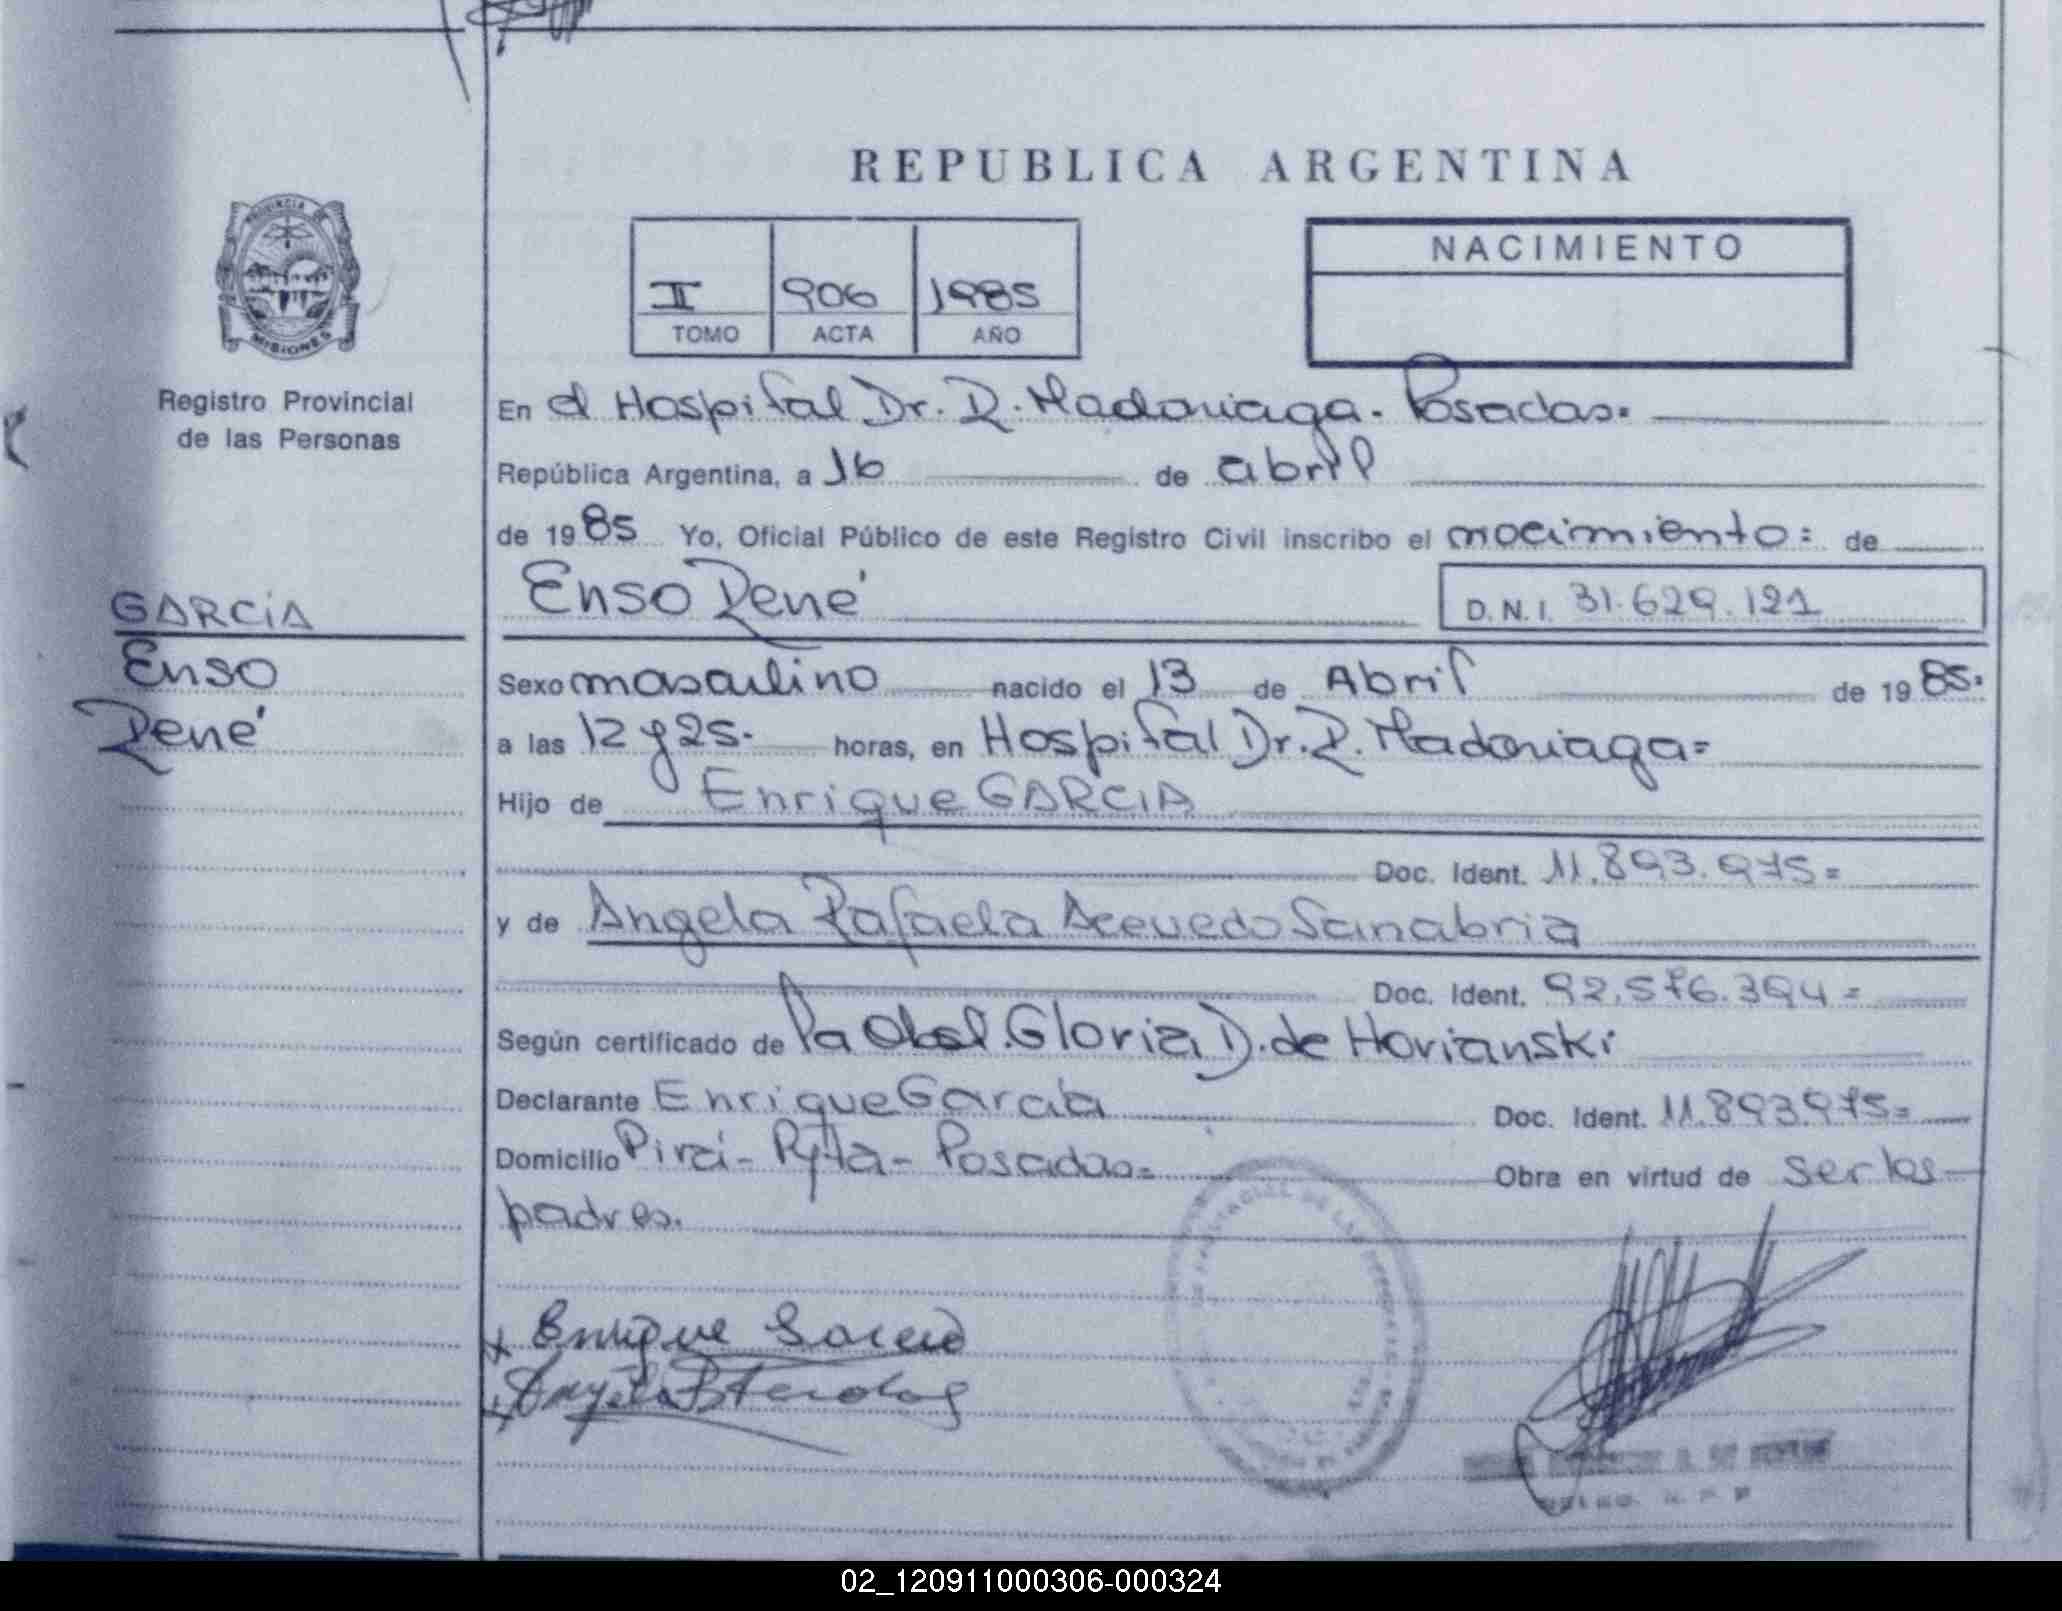 REPUBLICA ARGENTINA
PROVINCIA DE
MISIONES
Registro Provincial
de las Personas
II 906 1985
TOMO ACTA AÑO
NACIMIENTO
En el Hospital Dr. R. Madariaga. Posadas.
República Argentina, a 16 de abril
de 1985 Yo, Oficial Público de este Registro Civil inscribo el nacimiento: de
Enso René D.N.I. 31.629.121
GARCIA
Enso
René
Sexo masculino nacido el 13 de Abril de 1985.
a las 12 y 25. horas, en Hospital Dr. R. Madariaga=
Hijo de Enrique GARCIA
Doc. Ident. 11.893.975=
y de Angela Rafaela Acevedo Sanabria
Doc. Ident. 92.576.394=
Según certificado de la Obst. Gloria D. de Horianski
Declarante Enrique Garcia Doc. Ident. 11.893.975=
Domicilio Pirá-Pytá- Posadas= Obra en virtud de ser los
padres.
x Enrique Garcia
x Angela
02_120911000306-000324